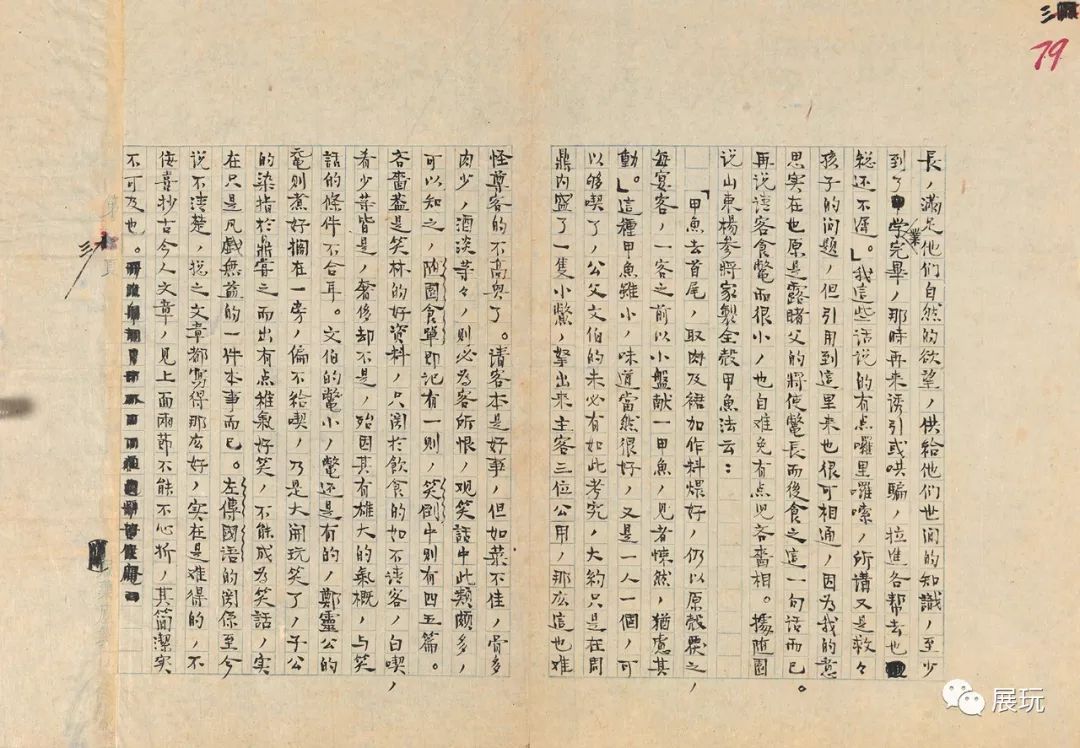 三
79
長，滿足他們自然的欲望，供給他們世间的知識，至少
到了中學完畢，那時再来誘引或哄騙，拉進各帮去也
業
總还不遲。」我這些话说的有点囉里囉嗦，所講又是救々
孩子的问题，但引用到這里来也很可相通，因為我的意
思实在也原是露睹父的將使鼈長而後食之這一句话而已。
再说请客食鼈而很小，也自难免有点児吝嗇相。據随園
说山東楊参將家製全殼甲魚法云：
「甲魚去首尾，取肉及裙加作料煨好，仍以原殼覆之，
每宴客，一客之前以小盤献一甲魚，见者悚然，猶慮其
動。」這種甲魚雖小，味道當然很好，又是一人一個，可
以够喫了，公父文伯的未必有如此考究，大约只是在周
鼎内盛了一隻小鼈，拏出来主客三位公用，那么這也难
怪尊客的不高興了。请客本是好事，但如菜不佳，骨多
肉少，酒淡等々，则必为客所恨，观笑話中此類頗多，
可以知之，随園食單即记有一则，笑倒中则有四五篇。
吝嗇盖是笑林的好資料，只関於飲食的如不请客，白喫，
肴少等皆是，奢侈却不是，殆因其有雄大的氣概，与笑
話的條件不合耳。文伯的鼈小，鼈还是有的，鄭靈公的
黿则煮好擱在一旁，偏不给喫，乃是大開玩笑了，子公
的染指於鼎嘗之而出有点稚氣好笑，不能成為笑話，实
在只是凡戲無益的一件本事而已。左傳國语的関係至今
说不清楚，總之文章都寫得那么好，实在是难得的，不
佞喜抄古今人文章，見上面兩節不能不心折，其简潔实
不可及也。
三
展玩